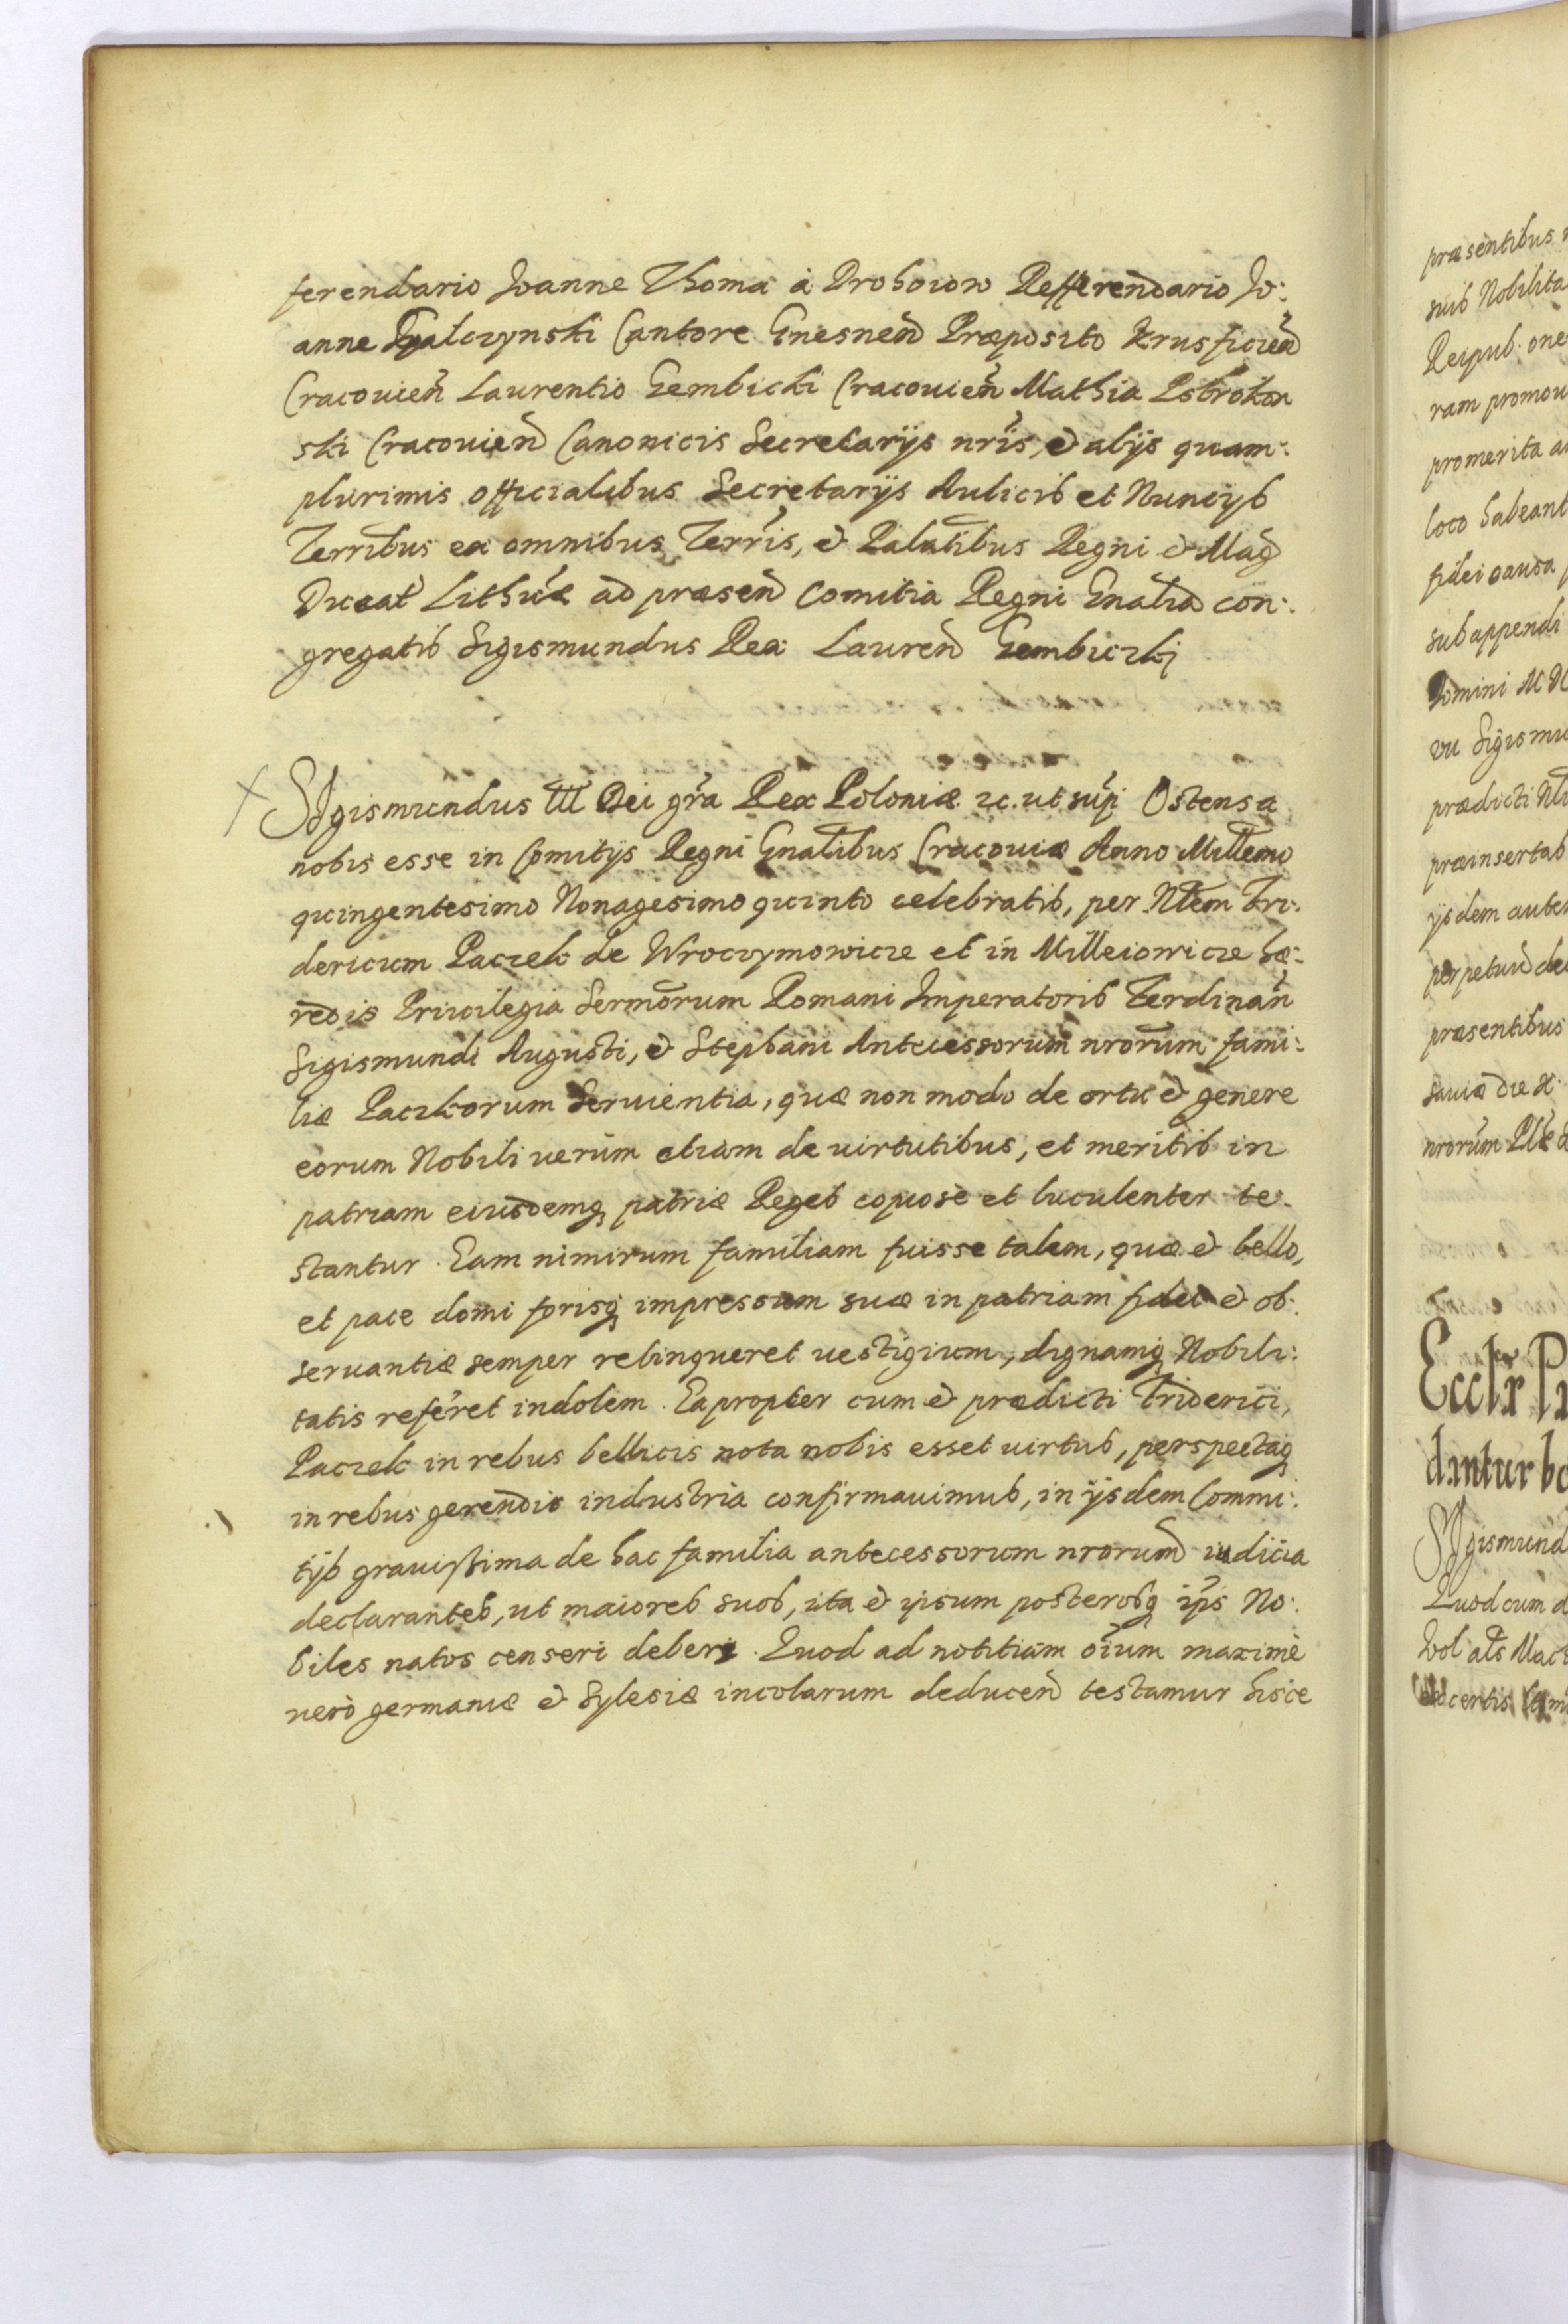 ferendario Joanne Thoma à Drohoiow Refferendario Jo:
anne Gyalczynski Cantore Gnesneñ Præposito Krusficieñ
Cracouieñ Laurentio Gembicki Cracouieñ Mathia Pstrokon
ski Cracouieñ Canonicis Secretarijs nr̃is, & alijs quam:
plurimis officialibus Secretarijs Aulicis et Nuncijs
Terribus ex omnibus Terris, & Palatibus Regni & Mag
Ducat Lithuæ ad præseñ Comitia Regni Gnalia con:
gregatis Sigismundus Rex Laureñ Gembiczkj
Sigismundus III Dei gr̃a Rex Poloniæ ꝛc. ut sup̃ Ostensa
nobis esse in Comitijs Regni Gnalibus Cracouiæ Anno Millemo
quingentesimo Nonagesimo quinto celebratis, per Nlem Fri:
dericum Paczek de Wroczymowicze et in Milleiowicze hæ:
redis Priuilegia Sermorum Romani Imperatoris Ferdinañ
Sigismundi Augusti, & Stephani Antecessorum nrorum fami:
liæ Paczkorum Seruientia, quæ non modo de ortu & genere
eorum Nobili uerùm etiam de uirtutibus, et meritis in
patriam eiusdemq patriæ Reges copiosè et luculenter te:
stantur. Eam nimirum familiam fuisse talem, quæ & bello,
et pace domi forisq impressum suæ in patriam fidei & ob:
seruantiæ semper relinqueret uestigium, dignamq Nobili:
tatis referet indolem. Eapropter cum & prædicti Friderici,
Paczek in rebus bellicis nota nobis esset uirtus, perspectaq
in rebus gerendis industria confirmauimus, in ijsdem Commi:
tijs grauißima de hac familia antecessorum nrorum iudicia
declarantes, ut maiores suos, ita & ipsum posterosq ip̃s No:
biles natos censeri deberi. Quod ad notitiam oĩum maximè
uerò germaniæ & Sylesiæ incolarum deduceñ testamur hisce
præsentibus
suis Nobilita
Reipub. one
ram promou
promerita a
loco habeant
fidei causa
sub appendi
Domini M D
vu Sigismu
prædicti Nl
præinsertas
ijsdem auten
perpetuò de
præsentibus
sauiæ die x.
nrorum
Ecclr
dantur bo
Sigismund
Quod cum d
Wol als Mac
certis